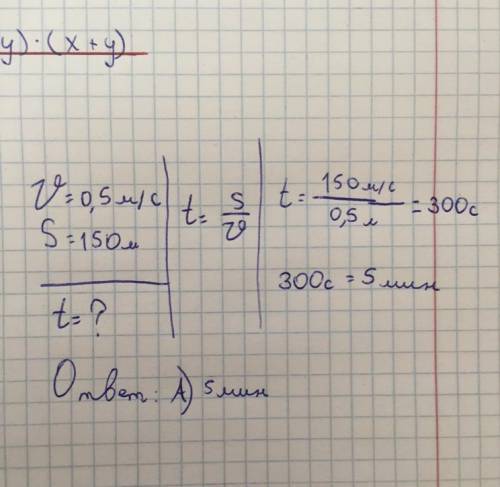 y) · (x + y)
V = 0,5 м/с
S = 150 м
t = ?
t = S/V
t = 150 м/с / 0,5 м = 300 с
300 с = 5 мин
Ответ: А) 5 мин